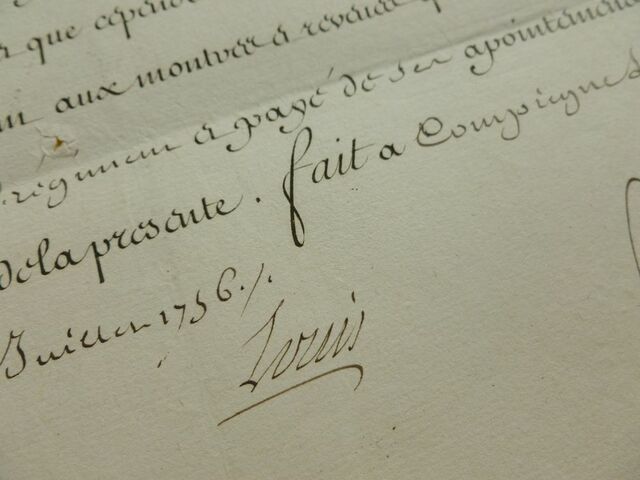 que cepen
aux montres et reveües
regiment et payé de ses apointemens
de la presente. fait a Compiegne
Juillet 1756./.
Louis